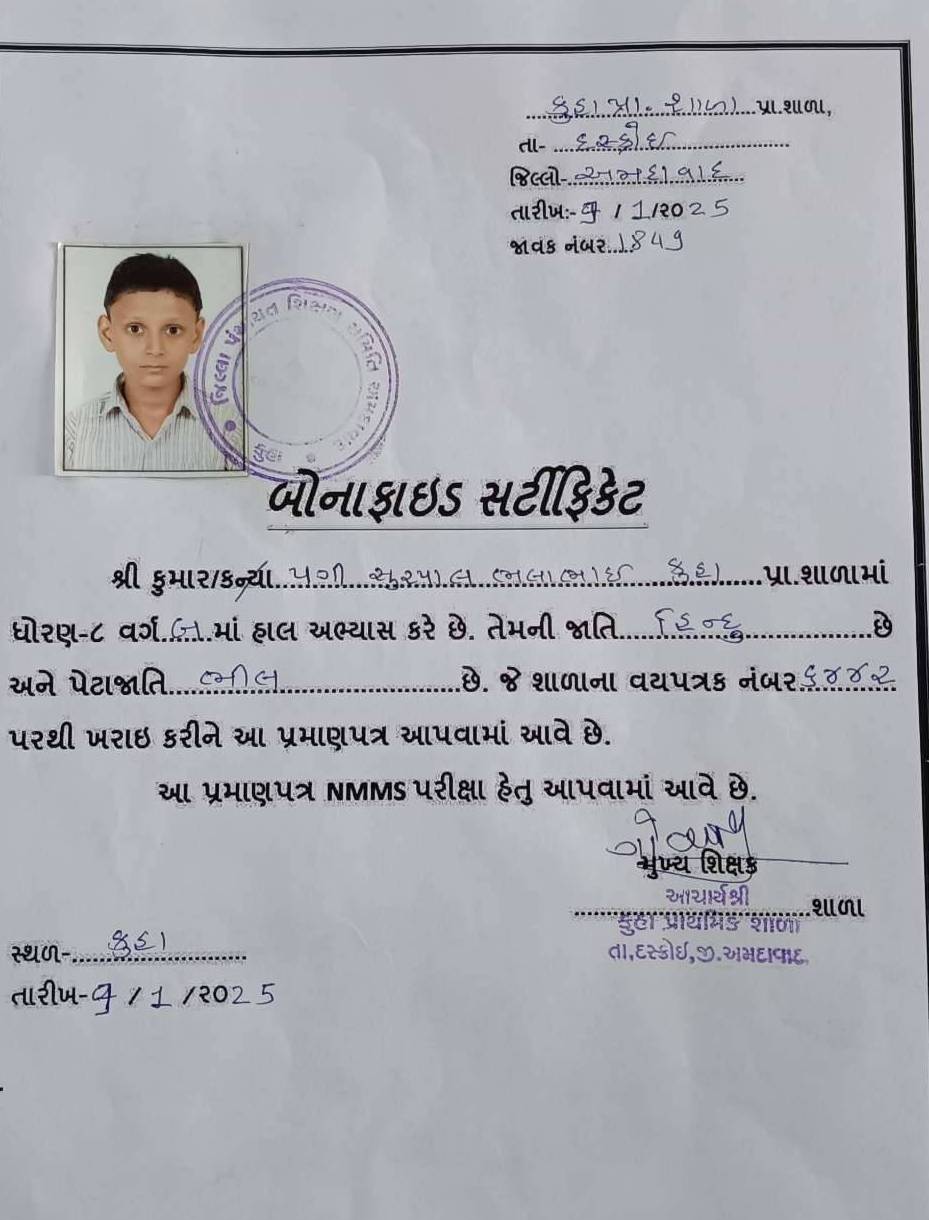 કુહા પ્રા. શાળા પ્રા.શાળા,
તા- દસ્ક્રોઈ
જિલ્લો- અમદાવાદ
તારીખ:- 9 / 1 /૨૦25
જાવક નંબર...1849
જિલ્લા પંચાયત શિક્ષણ સમિતિ અમદાવાદ
કુહા
બોનાફાઇડ સર્ટીફિકેટ
શ્રી કુમાર/કન્યા પગી સુરપાલ ભલાભાઈ કુહા પ્રા.શાળામાં
ધોરણ-૮ વર્ગ બ માં હાલ અભ્યાસ કરે છે. તેમની જાતિ હિન્દુ છે
અને પેટાજાતિ ભીલ છે. જે શાળાના વયપત્રક નંબર ૬૪૪૨
પરથી ખરાઇ કરીને આ પ્રમાણપત્ર આપવામાં આવે છે.
આ પ્રમાણપત્ર NMMS પરીક્ષા હેતુ આપવામાં આવે છે.
મુખ્ય શિક્ષક
આચાર્યશ્રી
શાળા
કુહા પ્રાથમિક શાળા
તા,દસ્ક્રોઇ,જી.અમદાવાદ.
સ્થળ- કુહા
તારીખ- 9 / 1 /૨૦25